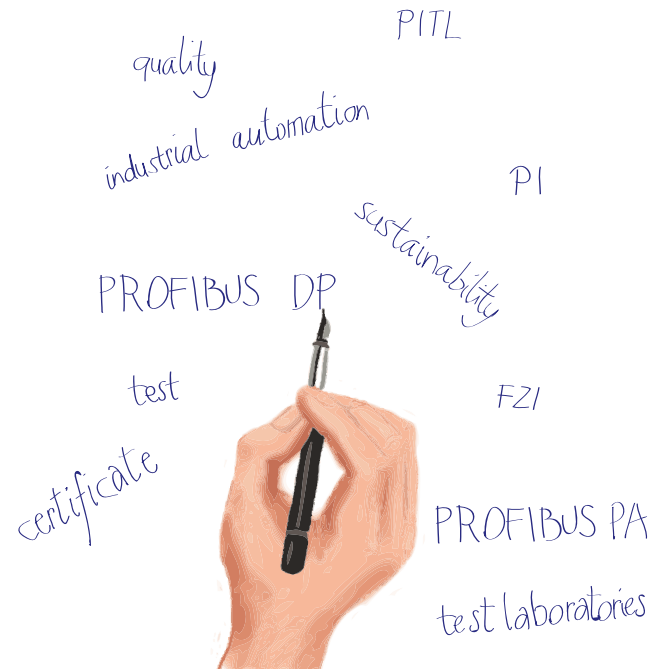 PITL
quality
industrial automation
PI
sustainability
PROFIBUS DP
test
FZI
certificate
PROFIBUS PA
test laboratories